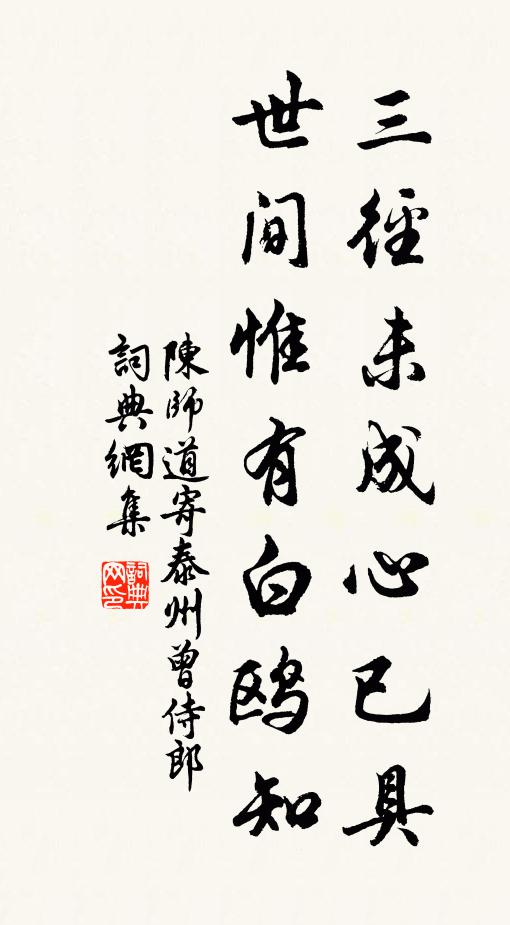 三徑未成心已具
世间惟有白鸥知
陳師道寄泰州曾侍郎
詞典網集
詞典网印